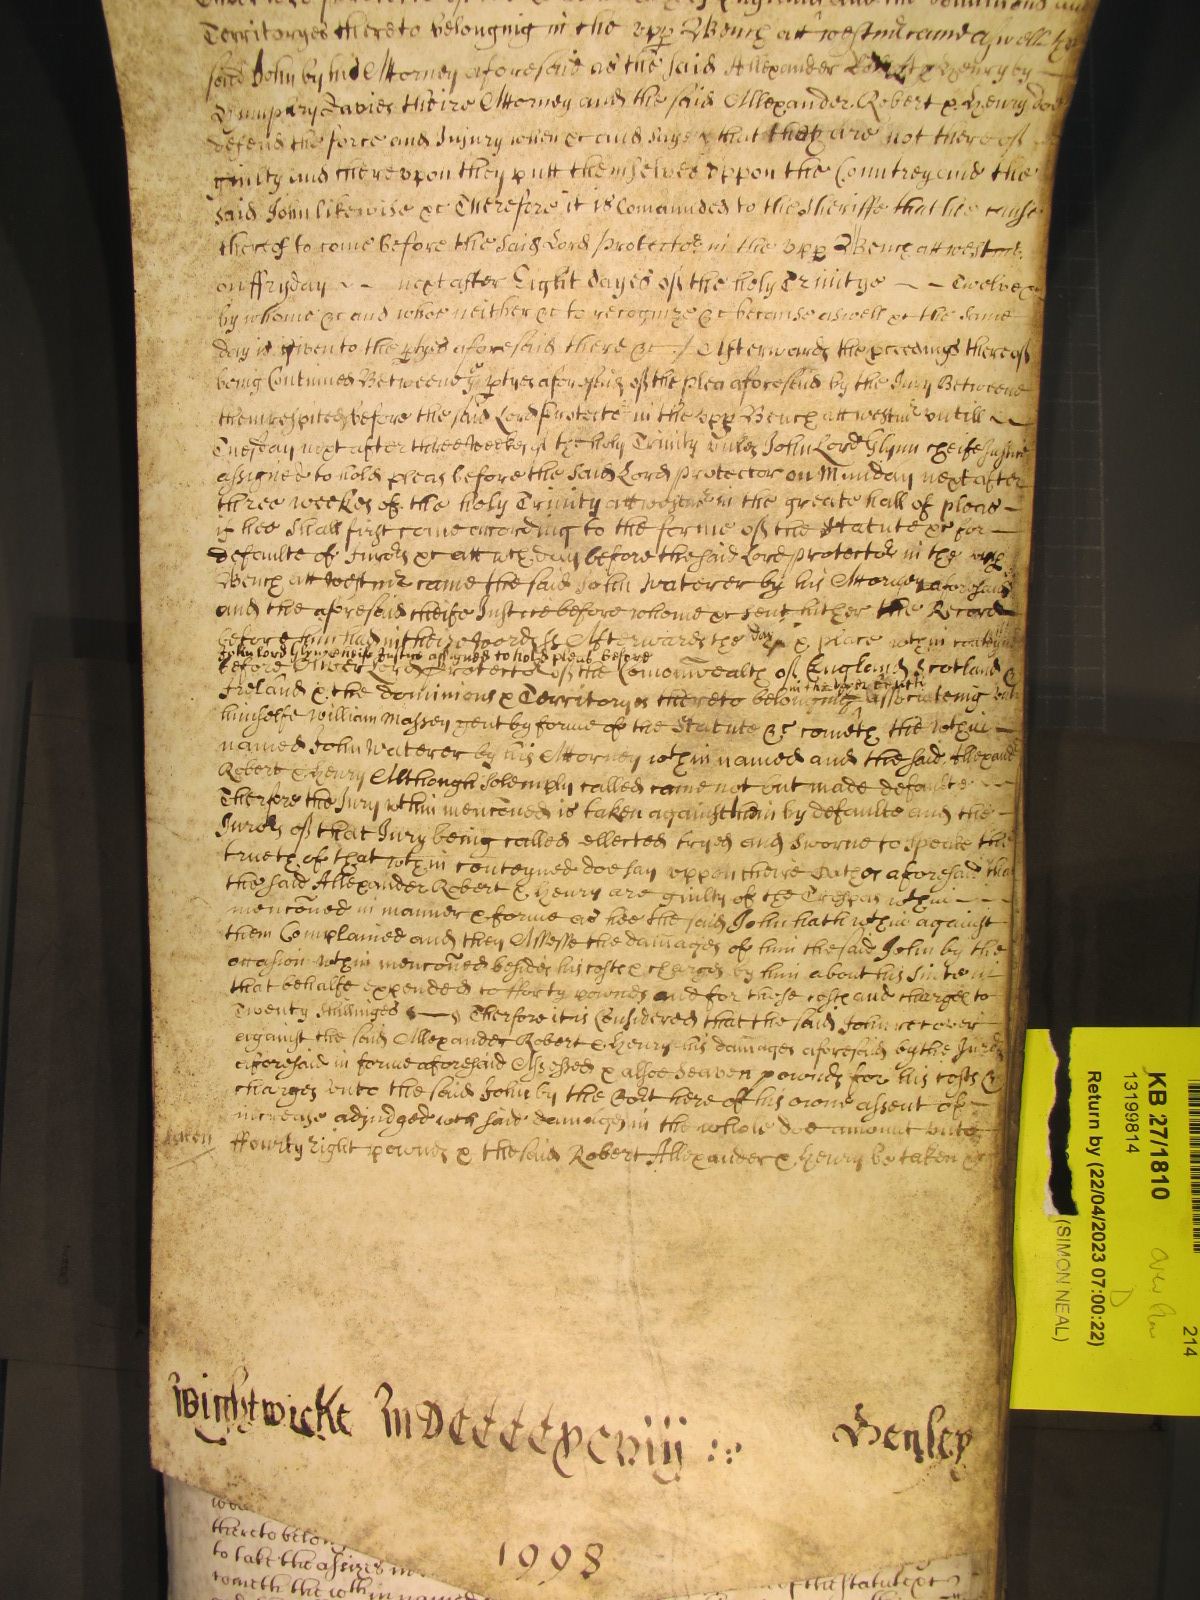 Territoryes thereto belonging in the upp Bench att westmr came aswell the
said John by his Attorney aforesaid as the said Allexander Robert & Henry by
Humphry Davies theire Attorney and the said Allexander Robert & Henry doe
defend the force and Injury when &c and saye that they are not thereof
guilty and thereupon they putt themselves uppon the Countrey and the
said John likewise &c Therefore it is Comanded to the Sheriffe that hee cause
thereof to come before the said Lord Protector in the upp Bench att westmr
on ffryday next after Eight dayes of the holy Trinitye Twelve &c
by whome &c and whoe neither &c to recognize &c because aswell &c the same
day is given to the ptyes aforesaid there &c Afterwards the pceedings thereof
being Continued Betweene ye ptyes aforesaid of the plea aforesaid by the Jury Betweene
them respited before the said Lord Protector in the upp Bench att westmr untill
Tuesday next after three weekes of the holy Trinity unles John Lord Glynn cheife Justice
assigned to hold pleas before the said Lord Protector on Munday next after
three weekes of the holy Trinity att westmr in the greate hall of pleas
if hee shall first come according to the forme of the Statute &c for
defaulte of Jurors &c att wch day before the said Lord Protector in the upp
Bench att westmr came the said John Waterer by his Attorney aforesaid
and the aforesaid cheife Justice before whome &c sent hither the Record
before him had in theise words ss Afterwards the day & place wthin conteyned
John lord Glynn cheife Justice assigned to hold pleas before
before Oliver Lord Protector of the Comonwealth of England Scotland &
in the upper bench
Ireland & the Dominions & Territoryes thereto belonging associateing unto
himselfe William Massey gent by forme of the Statute &c cometh the wthin
named John Waterer by his Attorney wthin named and the said Allexander
Robert & Henry Although solemply called came not but made defaulte
Therfore the Jury wthin mencōned is taken against them by defaulte and the
Jurors of that Jury being called ellected tryed and sworne to speake the
trueth of that wthin conteyned doe say uppon theire oathes aforesaid that
the said Allexander Robert & Henry are guilty of the Trespas wthin
mencōned in manner & forme as hee the said John hath wthin against
them Complained and they Assesse the damages of him the said John by the
occasion wthin mencōned besides his costs & charges by him about his suite in
that behalfe expended to fforty pownds and for those costs and charges to
Twenty shillinges Therfore it is Considered that the said John recover
against the said Allexander Robert & Henry his damages aforesaid by the Jurors
aforesaid in forme aforesaid Assessed & alsoe seaven pownds for his costs &
charges unto the said John by the Cort here of his owne assent of
increase adjudged wch said damages in the whole doe amount unto
ffourty Eight pownds & the said Robert Allexander & Henry be taken &c
Wightwicke MDCCCCxcviij Henley
1998
thereto belong
to take the assizes in
cometh the wthin named
of the statute &c
KB 27/1810
13199814
Return by (22/04/2023 07:00:22)
(SIMON NEAL)
214